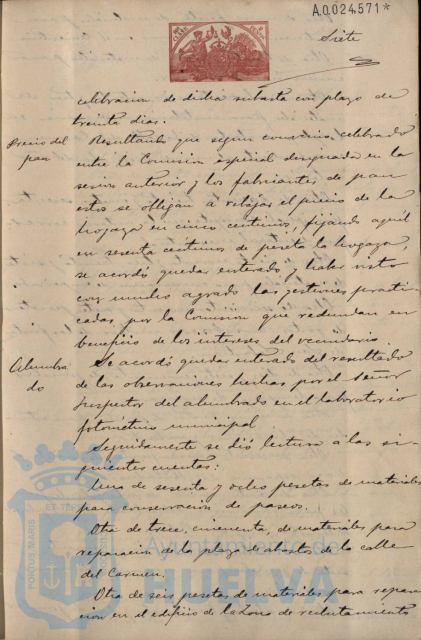 A.0.024,571*
Siete
celebracion de dicha subasta con plazo de
treinta dias.
Precio del
pan
Resultando que segun convenio celebrado
entre la Comision especial designada en la
sesion anterior y los fabricantes de pan
estos se obligan á rebajar el precio de la
hogaza en cinco centimos, fijando aquél
en sesenta centimos de peseta la hogaza,
se acordó quedar enterado y haber visto
con mucho agrado las gestiones practi-
cadas por la Comision que redundan en
beneficio de los intereses del vecindario.
Alumbra
do
Se acordó quedar enterado del resultado
de las observaciones hechas por el Señor
Inspector del alumbrado en el laboratorio
fotométrico municipal
Seguidamente se dió lectura á las si-
guientes cuentas:
Una de sesenta y ocho pesetas de materiales
para conservacion de paseos.
Otra de trece, cincuenta, de materiales para
reparacion de la plaza de abastos de la calle
del Carmen.
Otra de seis pesetas de materiales para repara-
cion en el edificio de la Zona de reclutamiento
PORTUS MARIS
Ayuntamiento de
HUELVA